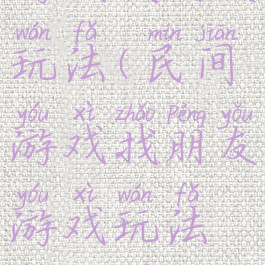 wán fǎ mín jiān
玩法(民间
yóu xì zhǎo Péng yǒu
游戏找朋友
yóu xì wán fǎ
游戏玩法